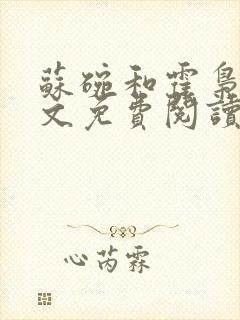 蘇碗和霆梟
文免費閱讀
心芮霖